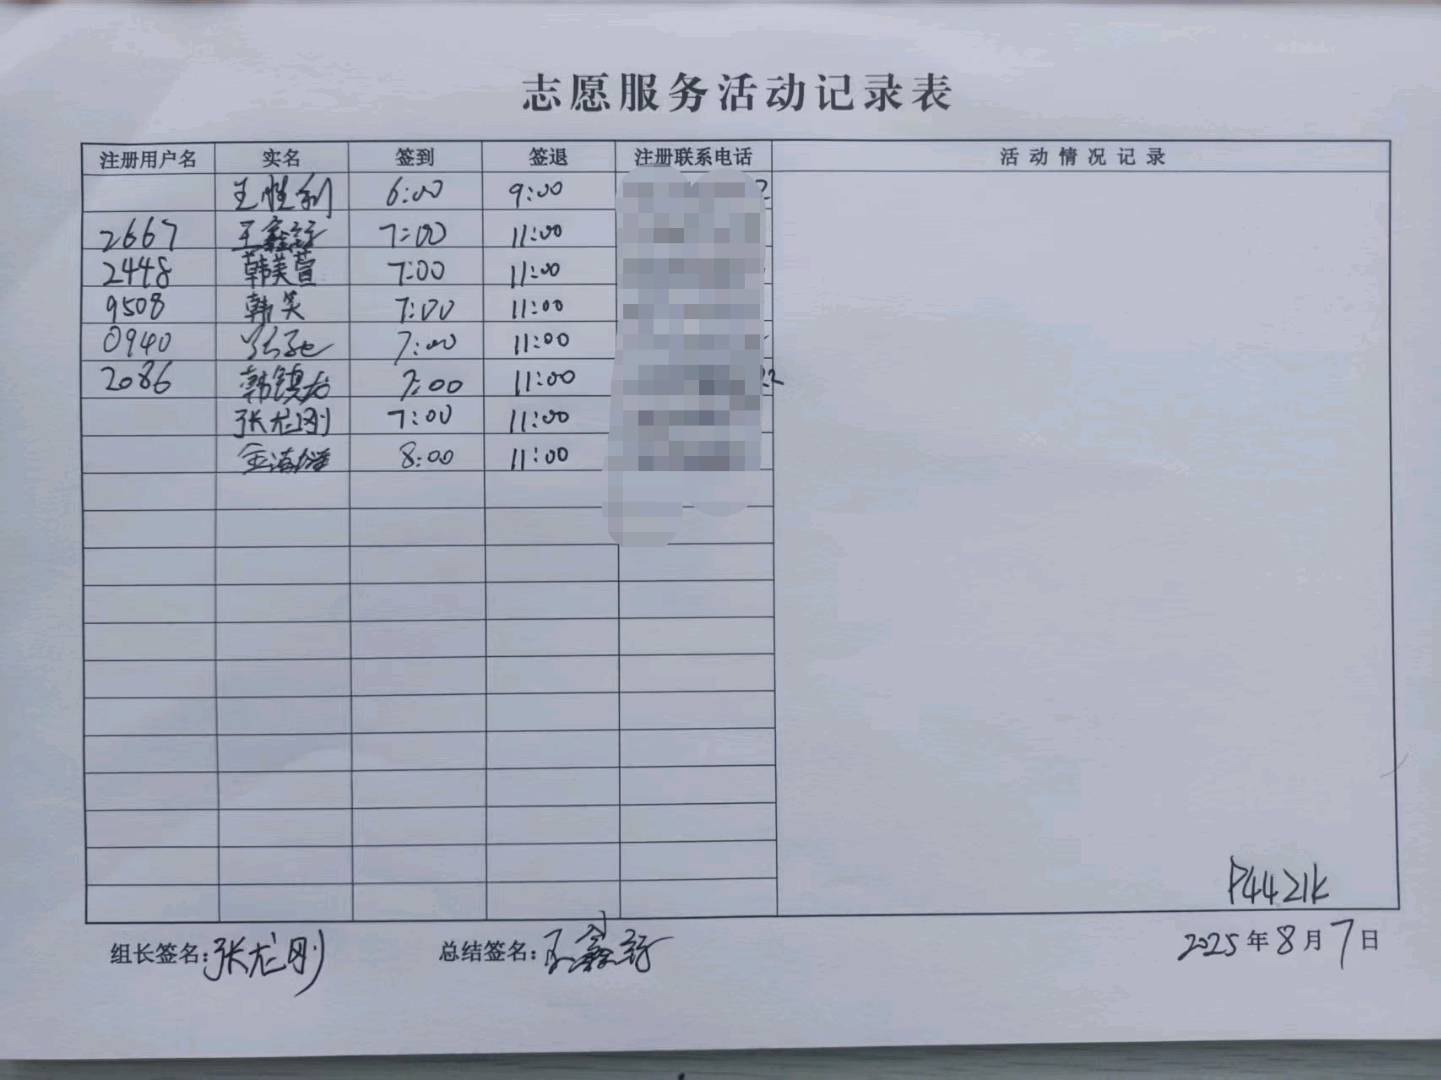 志愿服务活动记录表
注册用户名 实名 签到 签退 注册联系电话 活动情况记录
王胜利 6:00 9:00
2667 王鑫 7:00 11:00
2448 韩美萱 7:00 11:00
9508 韩笑 7:00 11:00
0940 7:00 11:00
2086 韩镇龙 7:00 11:00 22
张龙刚 7:00 11:00
8:00 11:00
P4421k
组长签名:张龙刚 总结签名:王鑫 2025年8月7日